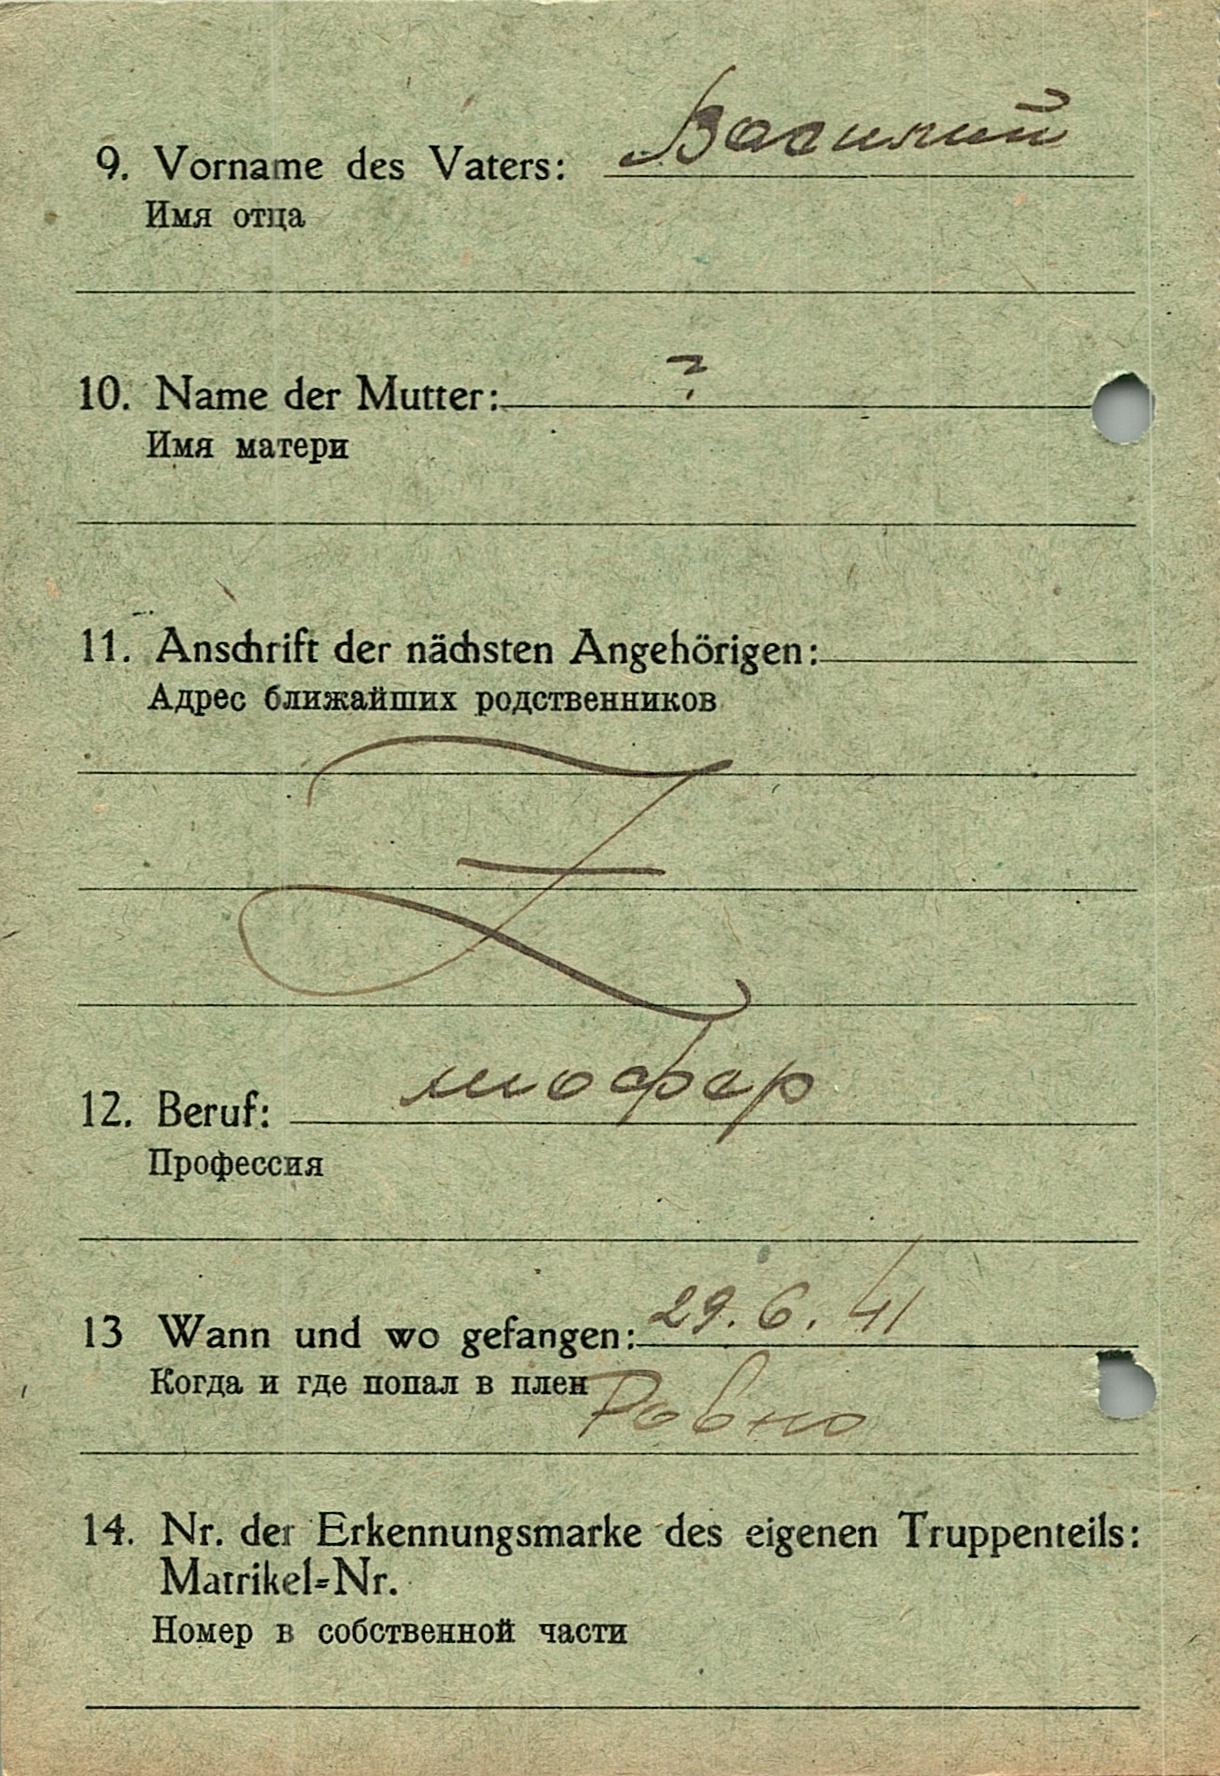 9. Vorname des Vaters: Василий
Имя отца
10. Name der Mutter: ?
Имя матери
11. Anschrift der nächsten Angehörigen:
Адрес ближайших родственников
Z
12. Beruf: шофер
Профессия
13 Wann und wo gefangen: 29.6.41
Когда и где попал в плен Ровно
14. Nr. der Erkennungsmarke des eigenen Truppenteils:
Matrikel=Nr.
Номер в собственной части